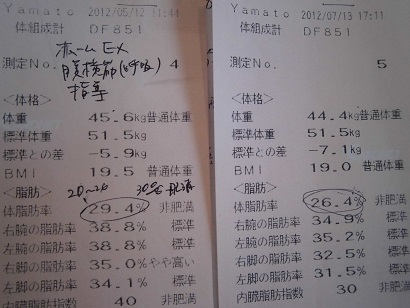 Yamato 2012/05/12 11:11
体組成計 DF851
ホームEX
腹横筋(呼吸)
指導
測定No. 4
<体格>
体重 45.6kg普通体重
標準体重 51.5kg
標準との差 -5.9kg
BMI 19.5 普通体重
<脂肪>
体脂肪率 29.4% 非肥満
右腕の脂肪率 38.8% 標準
左腕の脂肪率 38.8% 標準
右脚の脂肪率 35.0%やや高い
左脚の脂肪率 34.1% 標準
内臓脂肪指数 40 非肥満
Yamato 2012/07/13 17:11
体組成計 DF851
測定No. 5
<体格>
体重 44.4kg普通体重
標準体重 51.5kg
標準との差 -7.1kg
BMI 19.0 普通体重
<脂肪>
体脂肪率 26.4% 非肥満
右腕の脂肪率 34.9% 標準
左腕の脂肪率 35.2% 標準
右脚の脂肪率 32.5% 標準
左脚の脂肪率 31.5% 標準
内臓脂肪指数 30 非肥満